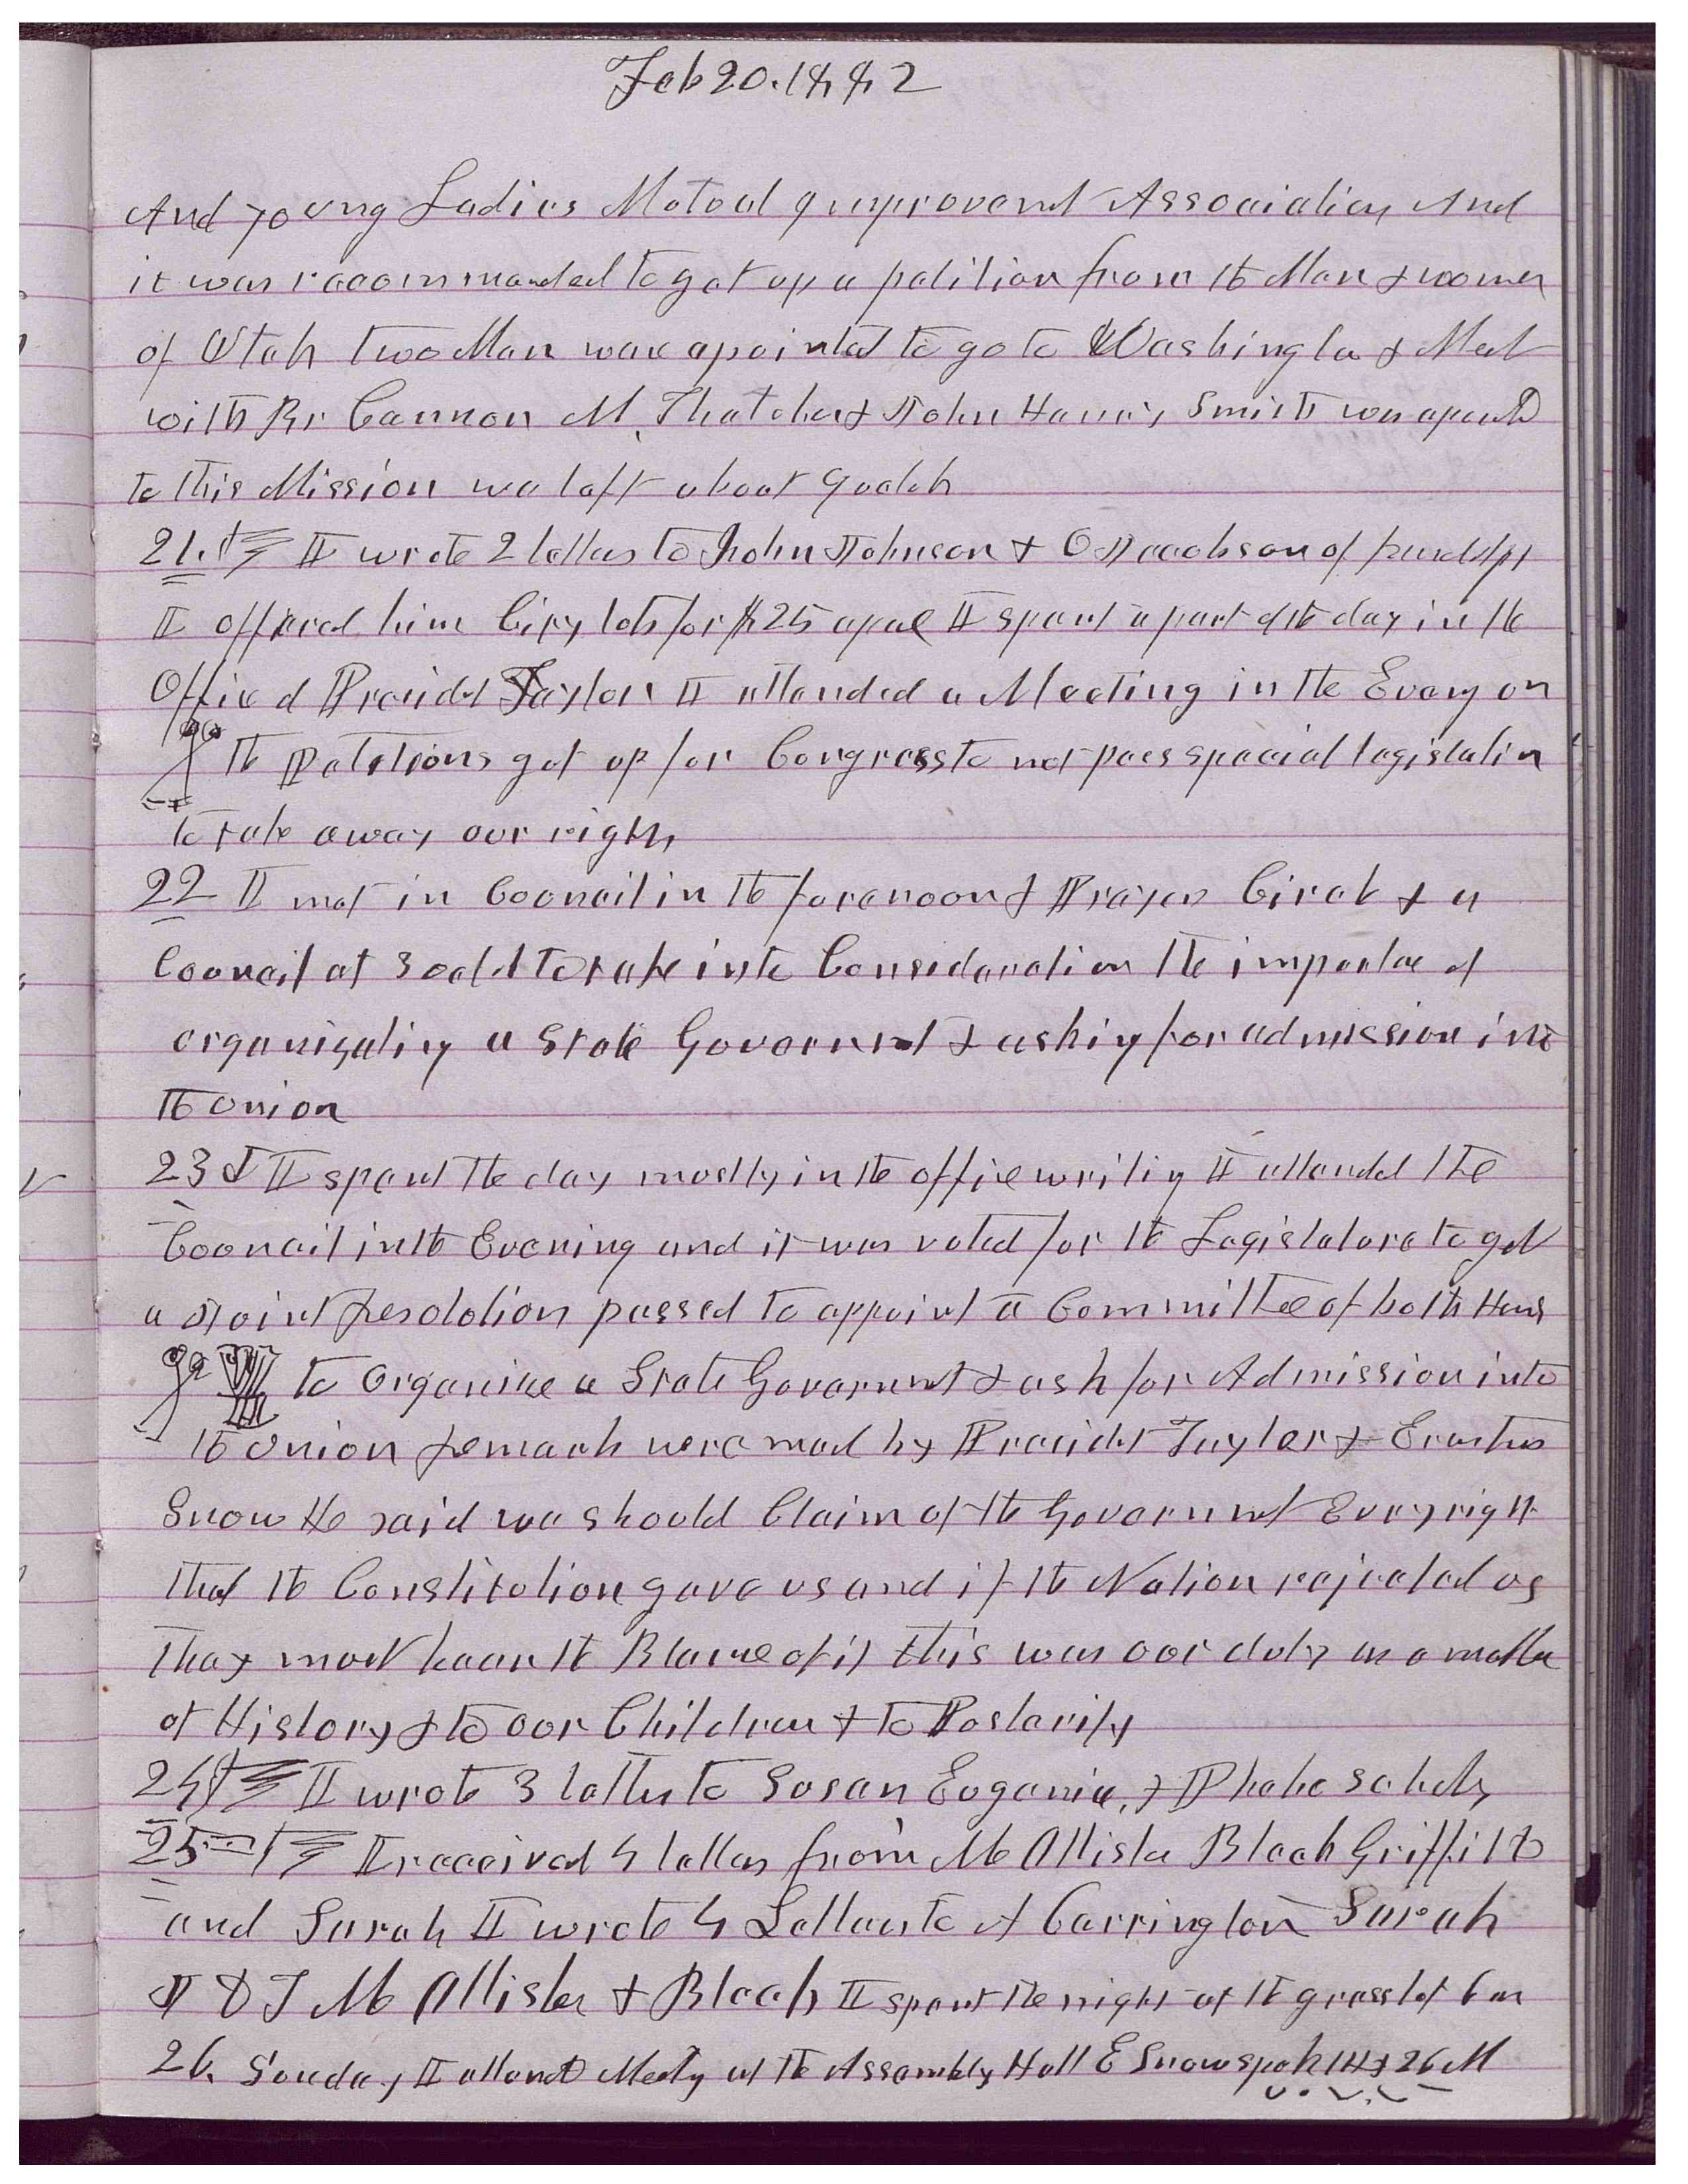 Feb 20. 1882
And young Ladies Mutual Improvement Association And
it was recommended to get up a petition from the Men & women
of Utah two Men were apointed to go to Washington & Meet
with Br Cannon M. Thatcher & John Henry Smith was apointd
to this Mission we left about 9 oclok
21. I wrote 2 letters to John Johnson & O Jacobson of
I offered him City lots for $25 apiece I spent a part of the day in the
Office of Presidet Taylor I attended a Meeting in the Eveny on
the Petitions got up for Congress to not pass special legislatin
to take away our rights
22 I met in Council in the forenoon & Prayer Circle & a
Council at 3 oclok to take into Consideration the importace of
organizating a State Government & asking for admission into
the union
23d I spent the day mostly in the office writing I attended the
Council in the Evening and it was voted for the Legislature to get
a Joint Resolution passed to appoint a Committee of both Hous
to Organize a State Government & ask for Admission into
the Union Remark were mad by Presidet Taylor & Erastus
Snow He said we should Claim of the Government Evry right
that the Constitution gave us and if the Nation rejected us
They must bear the Blame of it this was our duty as a matter
of History & to our Children & to Posterity
24 I wrote 3 letters to Susan Eugenia, & Phebe Scholes
25 I received 4 letters from McAllister Bleak Griffith
and Sarah I wrote 4 Letters to A Carrington Sarah
J D T McAllister & Bleak I spent the night at the grass lot 6 m
26. Sunday I attend Meetg at the Assembly Hall E Snow spok 1 H & 26 M